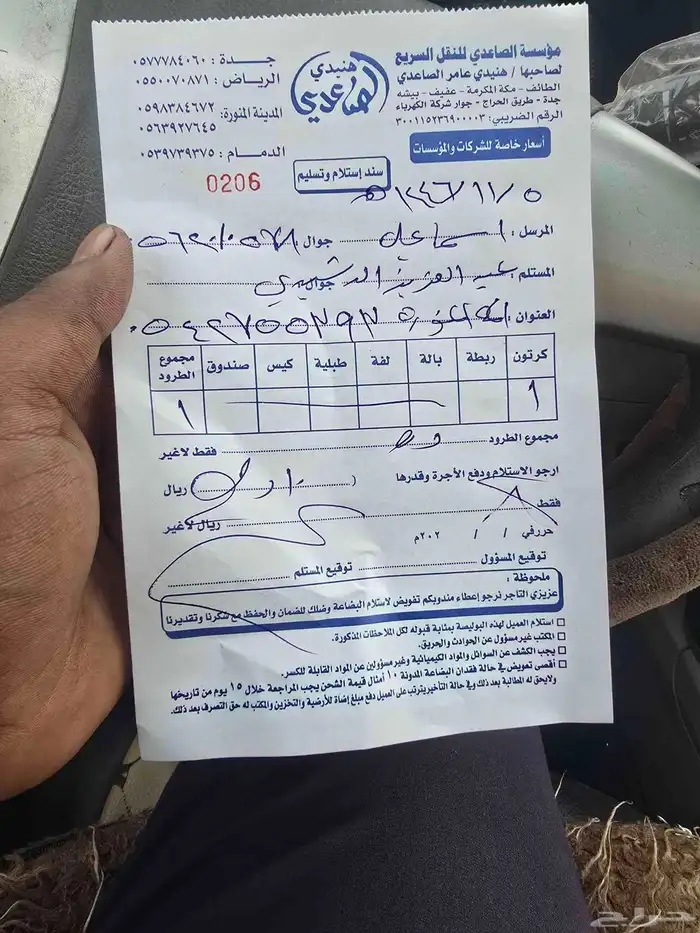 مؤسسة الصاعدي للنقل السريع
لصاحبها / هنيدي عامر الصاعدي
الطائف - مكة المكرمة - عفيف - بيشه
جدة - طريق الحراج - جوار شركة الكهرباء
الرقم الضريبي: ٣٠٠١١٥٢٣٦٩٠٠٠٠٣
أسعار خاصة للشركات والمؤسسات
هنيدي
الصاعدي
جدة : ٠٥٧٧٧٨٤٠٦٠
الرياض : ٠٥٥٠٠٧٠٨٧١
المدينة المنورة: ٠٥٩٨٣٨٤٦٧٢
٠٥٦٣٩٢٧٦٤٥
الدمام : ٠٥٣٩٧٣٩٣٧٥
سند إستلام وتسليم
0206
١٤٤٦/١١/٥
المرسل : اسماعيل جوال :
المستلم : عبد العزيز الرشيدي جوال
العنوان :
كرتون ربطة بالة لفة طبلية كيس صندوق مجموع الطرود
١ ١
مجموع الطرود فقط لاغير
ارجو الاستلام ودفع الأجرة وقدرها ( ) ريال
فقط ريال لاغير
حرر في / / ٢٠٢م
توقيع المسؤول توقيع المستلم
ملحوظة :
عزيزي التاجر نرجو إعطاء مندوبكم تفويض لاستلام البضاعة وضلك للضمان والحفظ مع شكرنا وتقديرنا
استلام العميل لهذه البوليصة بمثابة قبوله لكل الملاحظات المذكورة.
المكتب غير مسؤول عن الحوادث والحريق.
يجب الكشف عن السوائل والمواد الكيميائية وغير مسؤولين عن المواد القابلة للكسر.
أقصى تعويض في حالة فقدان البضاعة المدونة ١٠ أمثال قيمة الشحن يجب المراجعة خلال ١٥ يوم من تاريخها
ولايحق له المطالبة بعد ذلك وفي حالة التأخير يترتب على العميل دفع مبلغ إضافة للأرضية والتخزين والمكتب له حق التصرف بعد ذلك.
حراج